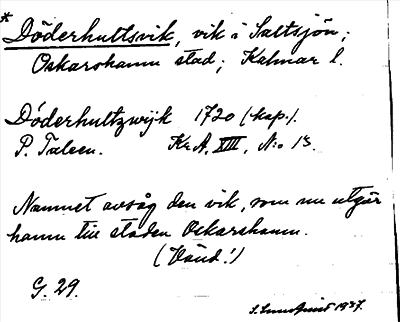 * Döderhultsvik, vik i Saltsjön;
Oskarshamn stad; Kalmar l.
Döderhultzwijk 1720 (kop.).
P. Taleen. Kr A, XIII, N:o 13.
Namnet avsåg den vik, som nu utgör
hamn till staden Oskarshamn.
(Vänd!)
G. 29.
S. Lundquist 1937.